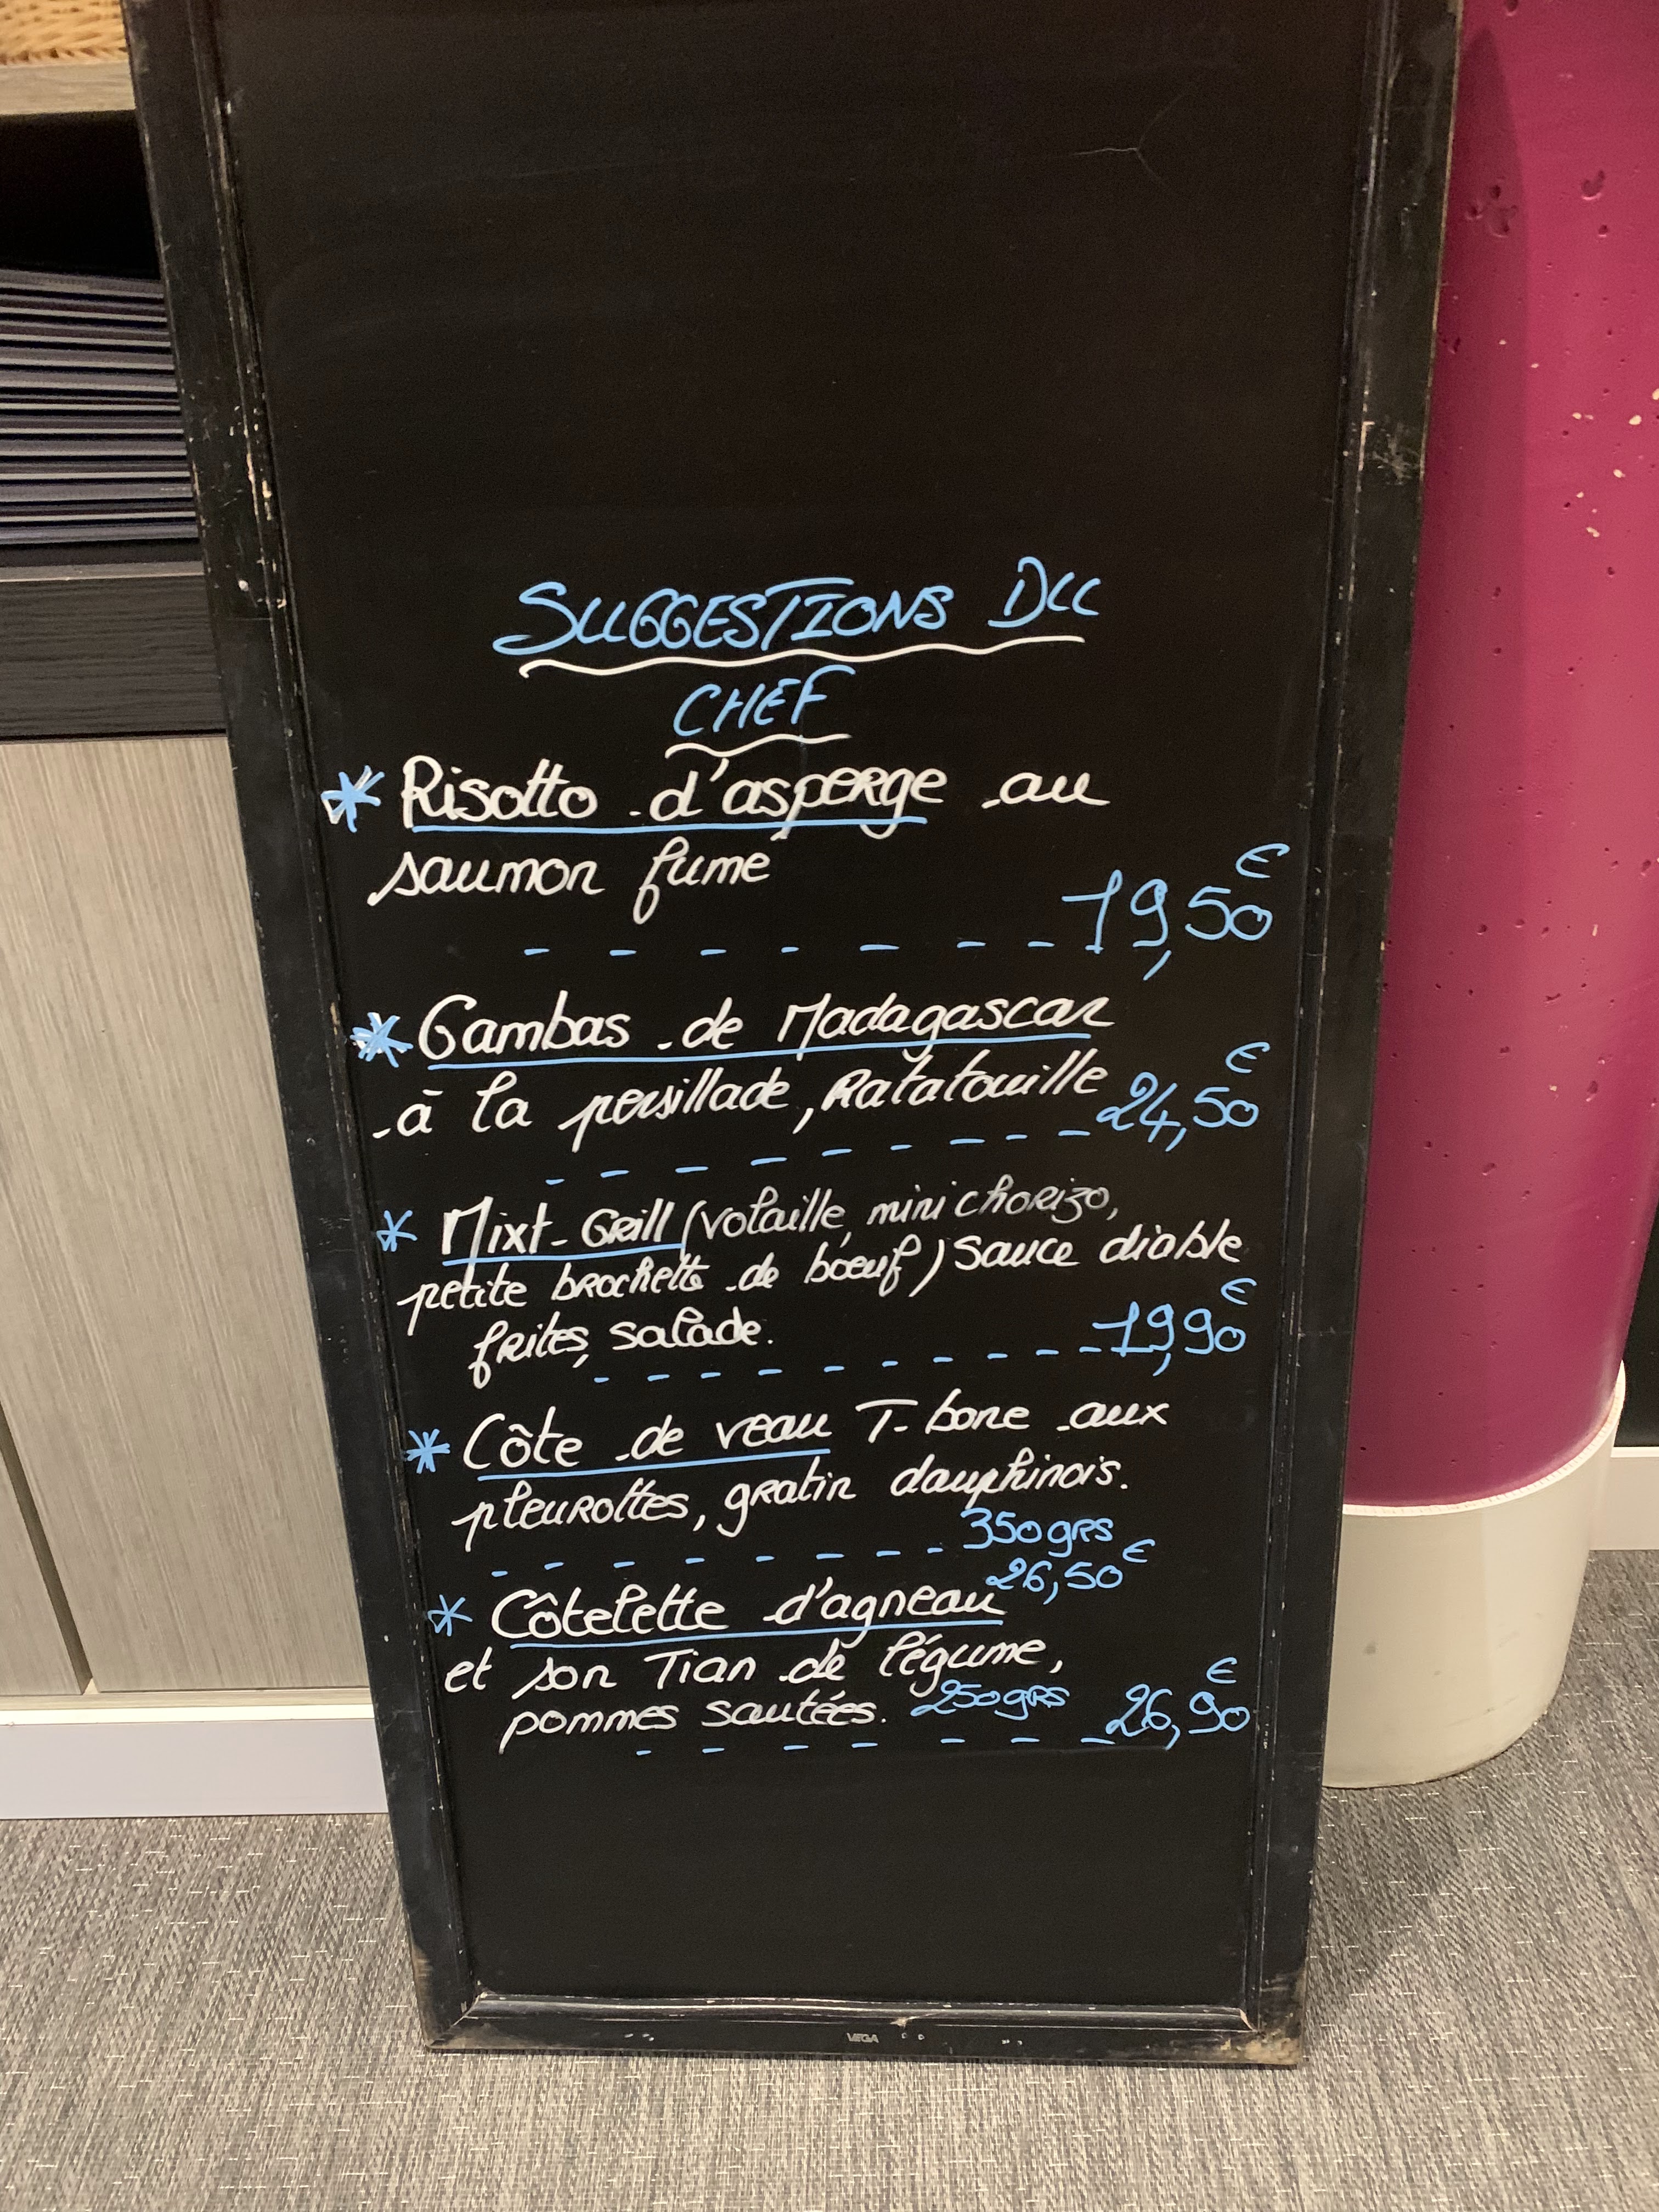 SUGGESTIONS DU
CHEF
* Risotto d'asperge au
saumon fumé
19,50€
* Gambas de Madagascar
à la persillade, Ratatouille 24,50€
* Mixt-Grill (volaille, mini chorizo,
petite brochette de bœuf) Sauce diable
frites, salade. 19,90€
* Côte de veau T-bone aux
pleurottes, gratin dauphinois.
350grs
26,50€
* Côtelette d'agneau
et son Tian de légume,
pommes sautées. 250grs 26,90€
VEGA